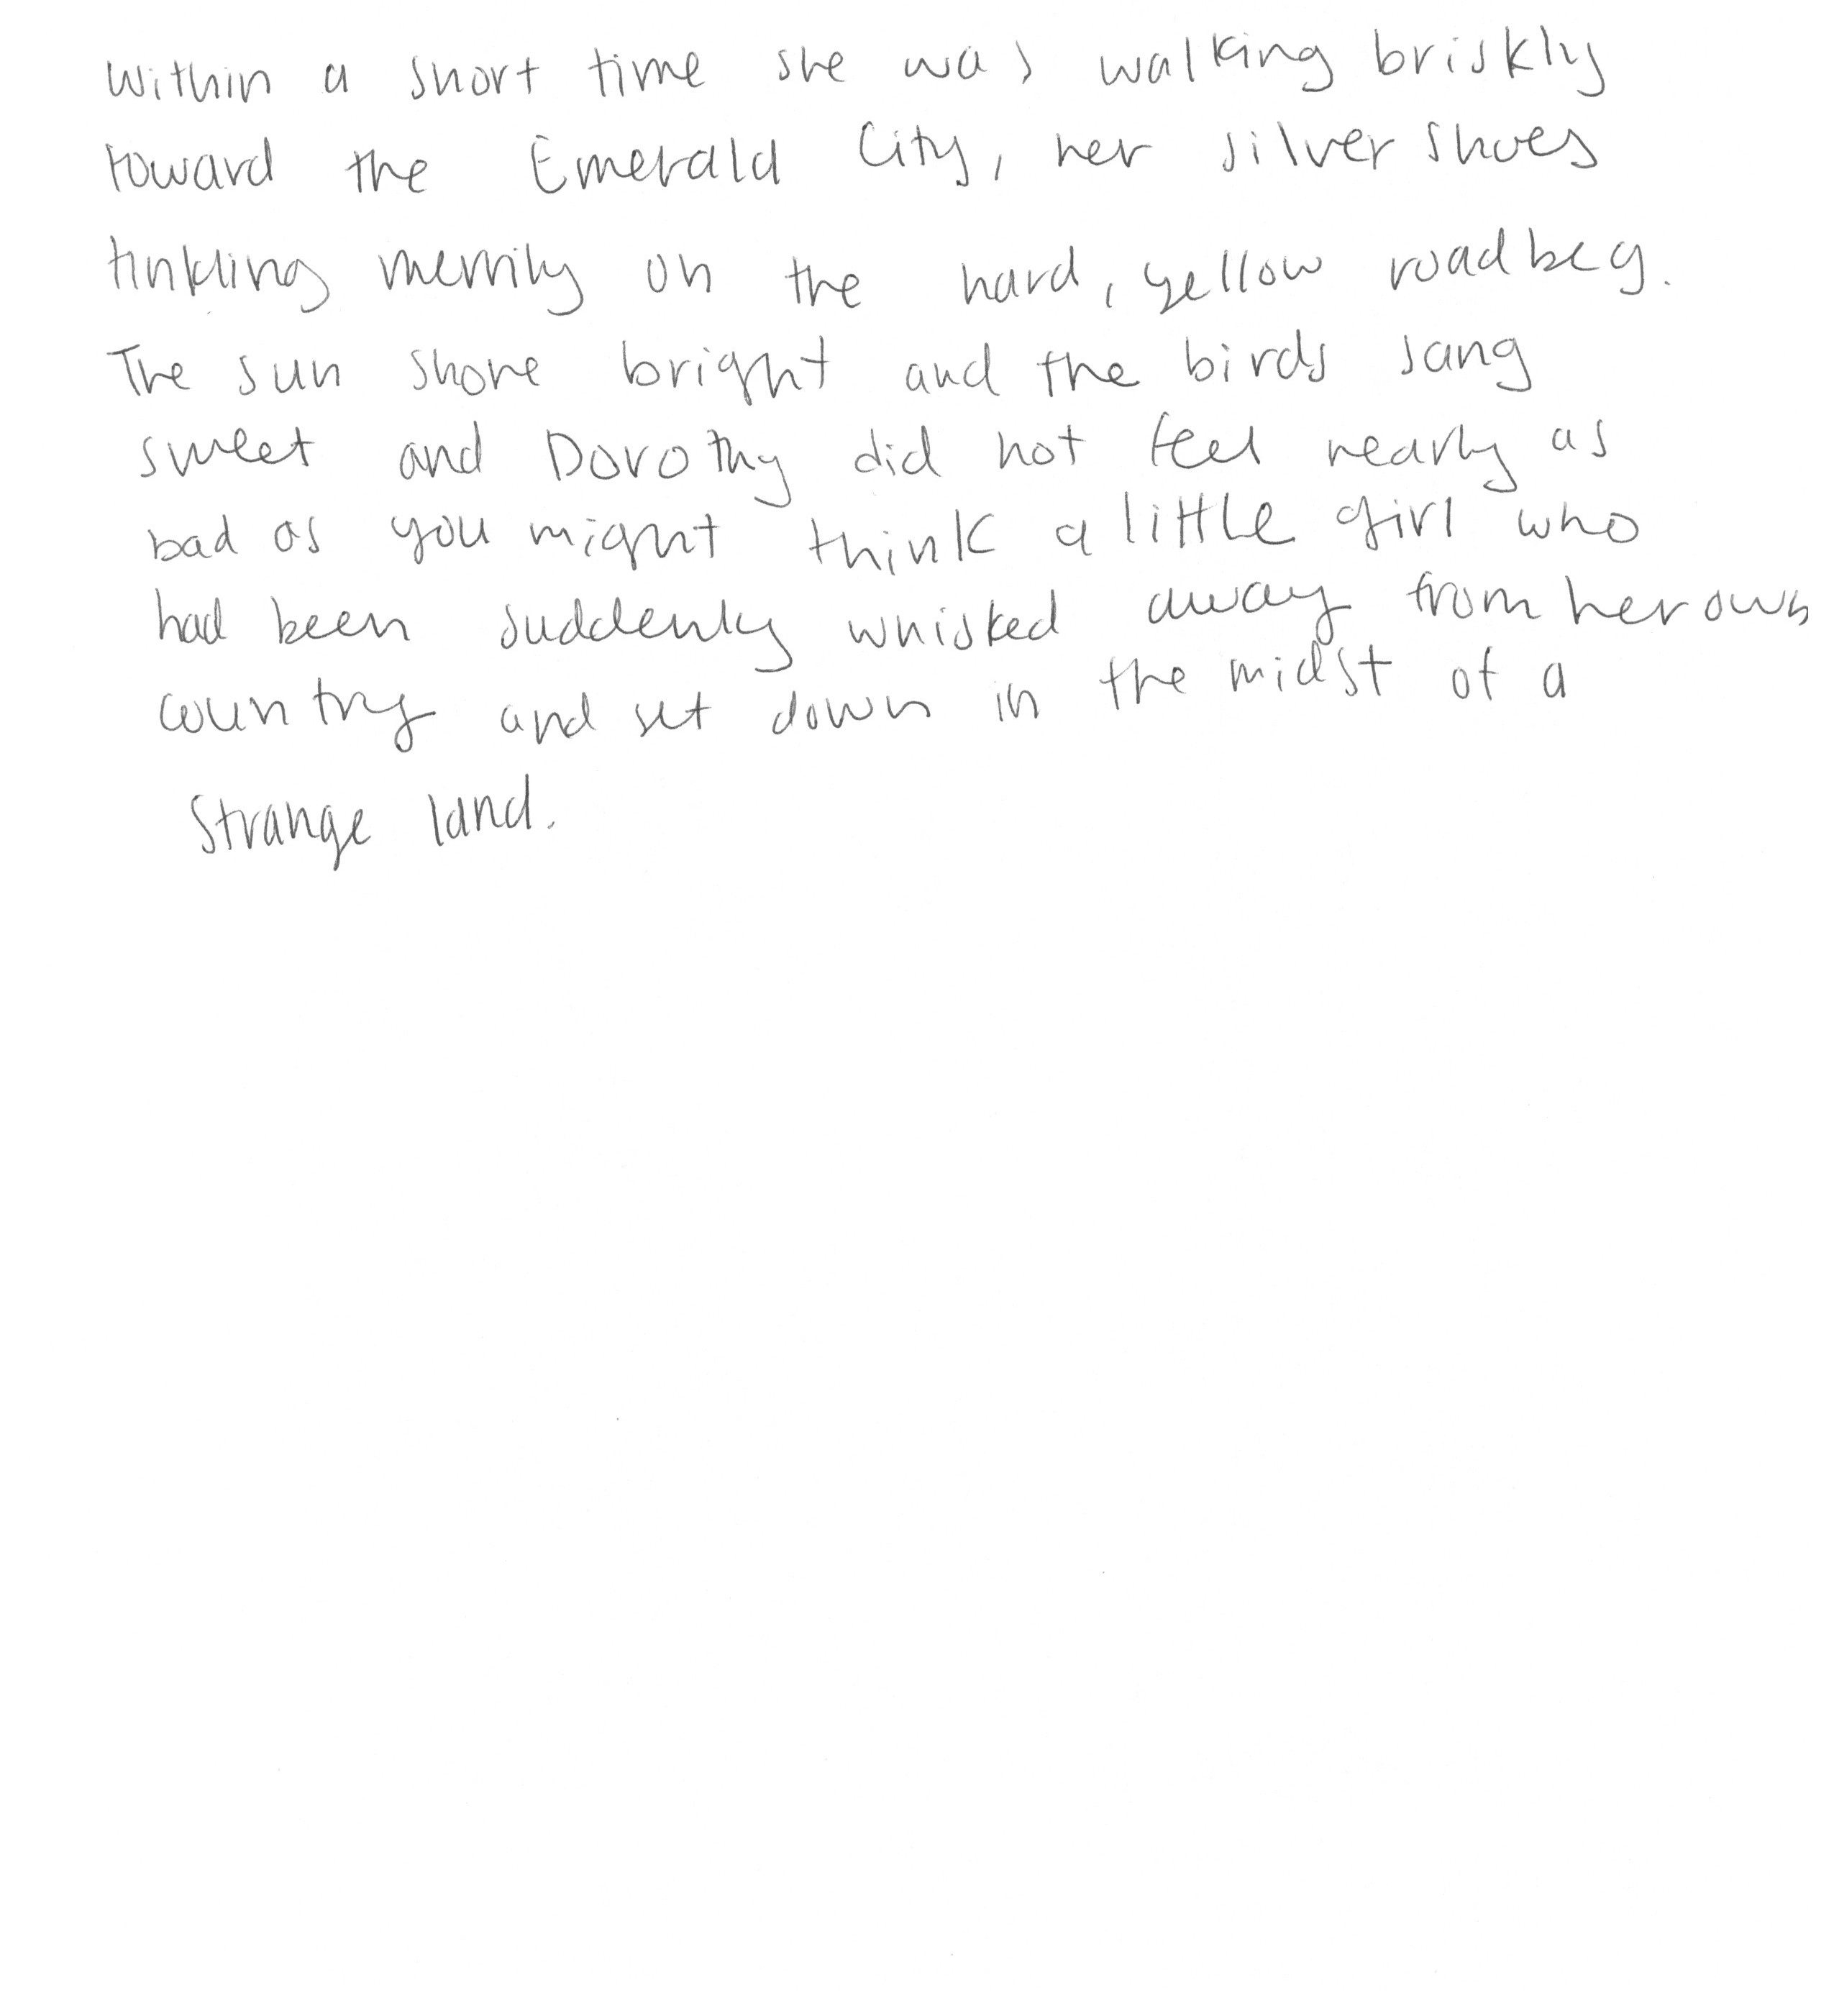 Within a short time she was walking briskly
toward the Emerald City, her silver shoes
tinkling merrily on the hard, yellow roadbeg.
The sun shone bright and the birds sang
sweet and Dorothy did not feel nearly as
bad as you might think a little girl who
had been suddenly whisked away from her own
country and set down in the midst of a
strange land.